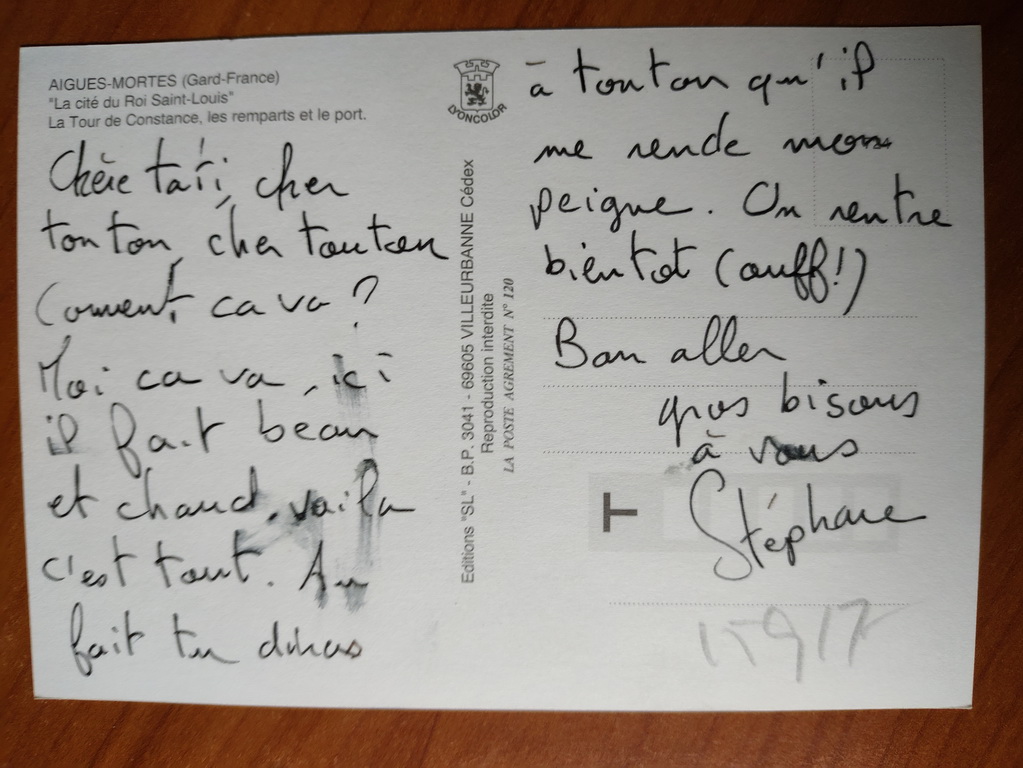 AIGUES-MORTES (Gard-France)
"La cité du Roi Saint-Louis"
La Tour de Constance, les remparts et le port.
Chère tati, cher
tonton, cher touton
Comment, ca va ?
Moi ca va, ici
il fait beau
et chaud, voila
c'est tout. Au
fait tu diras
LYONCOLOR
Editions "SL" - B.P. 3041 - 69605 VILLEURBANNE Cédex
Reproduction interdite
LA POSTE AGREMENT N° 120
à tonton qu'il
me rende mon
peigne. On rentre
bientot (ouff!)
Bon aller
gros bisous
à vous
T
Stéphane